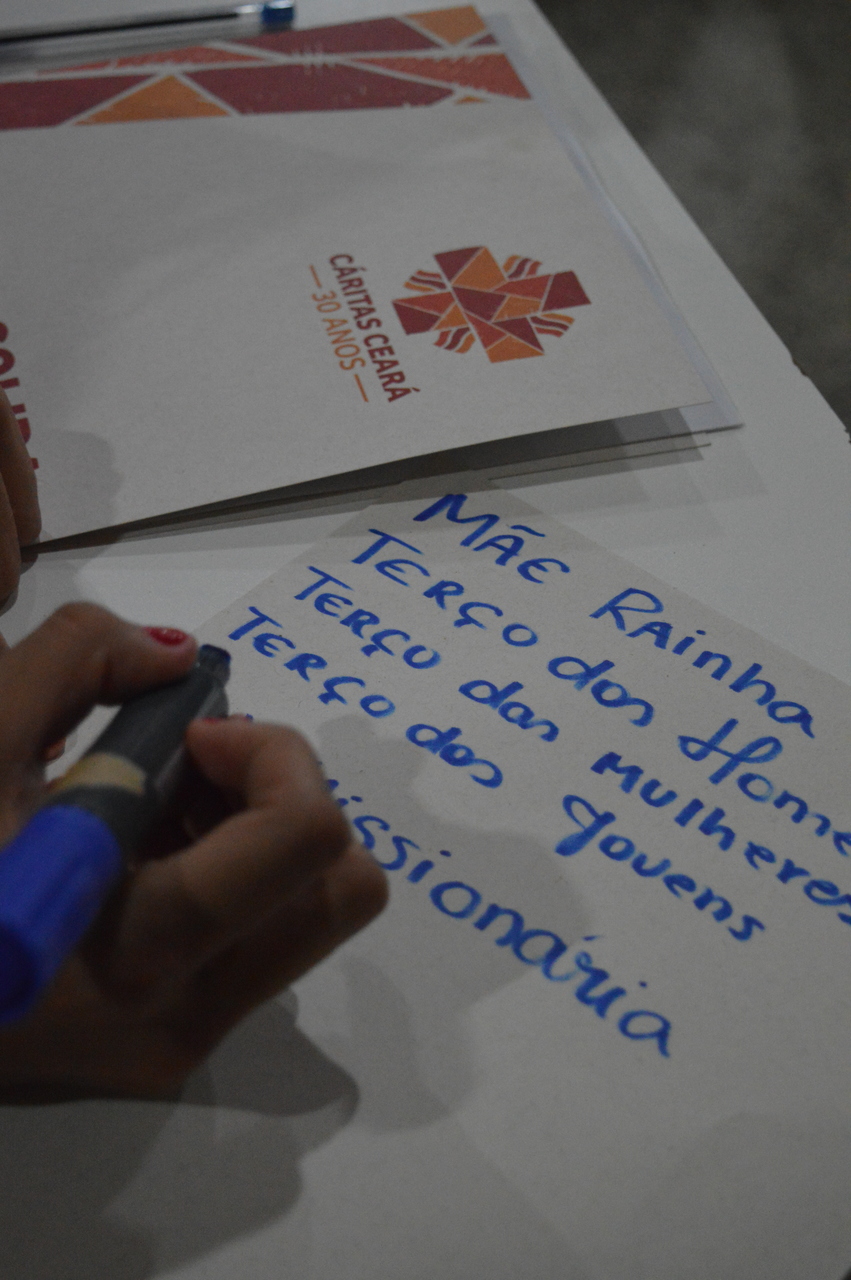 CÁRITAS CEARÁ
— 30 ANOS —
MÃE Rainha
TERÇO dos Home
TERÇO das mulheres
TERÇO dos Jovens
issionária